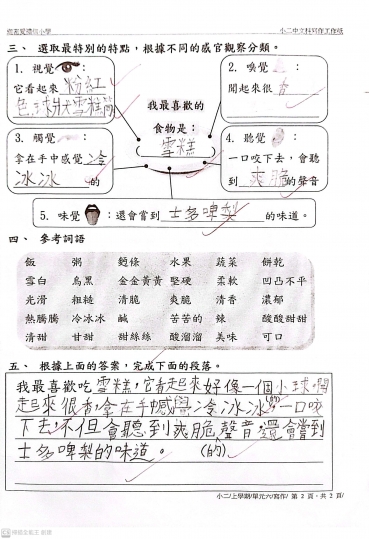 小二中文科寫作工作紙
三、 選取最特別的特點，根據不同的感官觀察分類。
1. 視覺
它看起來 粉紅
色、球狀雪糕筒
2. 嗅覺
聞起來很 香
我最喜歡的
食物是：
雪糕
3. 觸覺
拿在手中感覺 冷
冰冰 的
4. 聽覺
一口咬下去，會聽
到 爽脆 的聲音
5. 味覺 ：還會嘗到 士多啤梨 的味道。
四、 參考詞語
飯 粥 麪條 水果 蔬菜 餅乾
雪白 烏黑 金金黃黃 堅硬 柔軟 凹凸不平
光滑 粗糙 清脆 爽脆 清香 濃郁
熱騰騰 冷冰冰 鹹 苦苦的 辣 酸酸甜甜
清甜 甘甜 甜絲絲 酸溜溜 美味 可口
五、 根據上面的答案，完成下面的段落。
我最喜歡吃雪糕，它看起來好像一個小球，聞
起來很香，拿在手感覺冷冰冰(的)，一口咬
下去，不但會聽到爽脆聲音，還會嘗到
士多啤梨的味道。 (的)
小二/上學期/單元六/寫作/ 第 2 頁，共 2 頁/